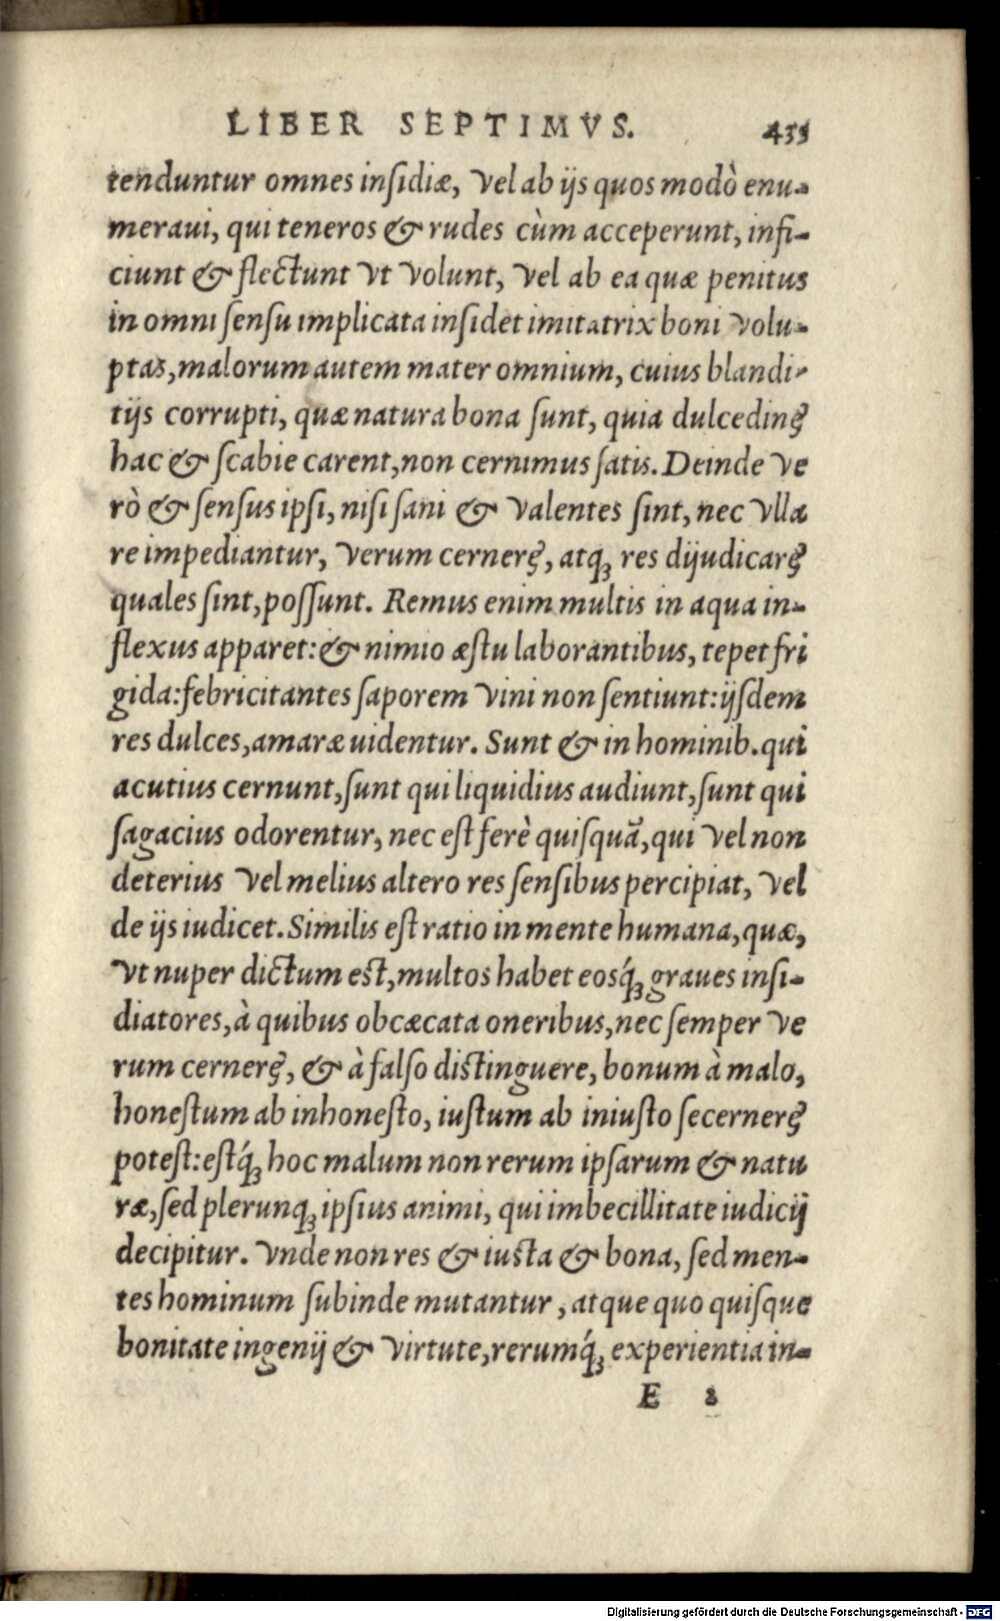 LIBER SEPTIMVS. 435
tenduntur omnes inſidiæ, vel ab ijs quos modò enu-
meraui, qui teneros & rudes cùm acceperunt, infi-
ciunt & flectunt vt volunt, vel ab ea quæ penitus
in omni ſenſu implicata inſidet imitatrix boni volu-
ptas, malorum autem mater omnium, cuius blandi-
tijs corrupti, quæ natura bona ſunt, quia dulcedinę
hac & ſcabie carent, non cernimus ſatis. Deinde ve
rò & ſenſus ipſi, niſi ſani & valentes ſint, nec vlla
re impediantur, verum cernerę, atqꝫ res dijudicarę
quales ſint, poſſunt. Remus enim multis in aqua in-
flexus apparet: & nimio æſtu laborantibus, tepet fri
gida: febricitantes ſaporem vini non ſentiunt: ijſdem
res dulces, amaræ uidentur. Sunt & in hominib. qui
acutius cernunt, ſunt qui liquidius audiunt, ſunt qui
ſagacius odorentur, nec eſt ferè quiſquā, qui vel non
deterius vel melius altero res ſenſibus percipiat, vel
de ijs iudicet. Similis eſt ratio in mente humana, quæ,
vt nuper dictum eſt, multos habet eosq́ꝫ graues inſi-
diatores, à quibus obcæcata oneribus, nec ſemper ve
rum cernerę, & à falſo diſtinguere, bonum à malo,
honeſtum ab inhoneſto, iuſtum ab iniuſto ſecernerę
poteſt: eſtq́ꝫ hoc malum non rerum ipſarum & natu
ræ, ſed plerunqꝫ ipſius animi, qui imbecillitate iudicij
decipitur. Vnde non res & iuſta & bona, ſed men-
tes hominum ſubinde mutantur, atque quo quiſque
bonitate ingenij & virtute, rerumq́ꝫ experientia in-
E 2
Digitalisierung gefördert durch die Deutsche Forschungsgemeinschaft - DFG